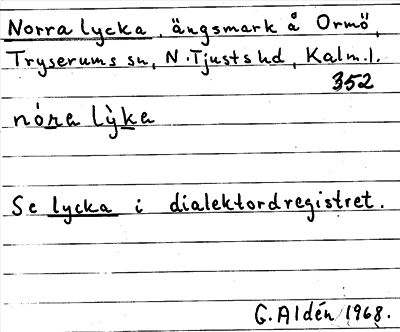 Norra lycka, ängsmark å Ormö,
Tryserums sn, N. Tjusts hd, Kalm. l.
352
nóra lỳka
Se lycka i dialektordregistret.
G. Aldén 1968.